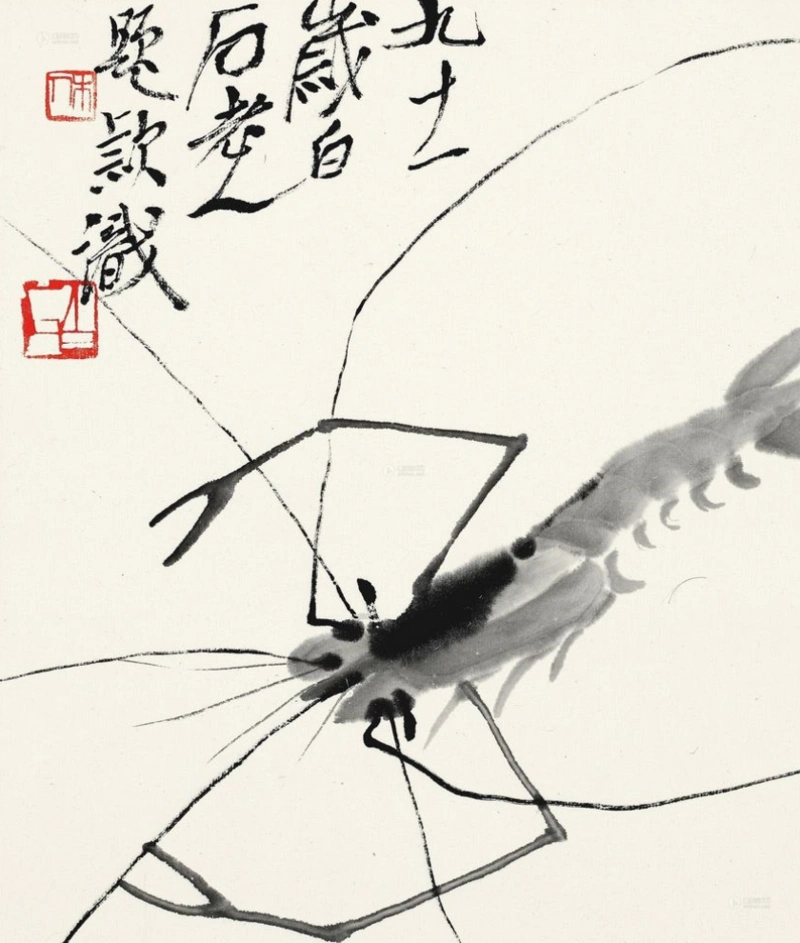 九十一
歲白
石老人
題款識